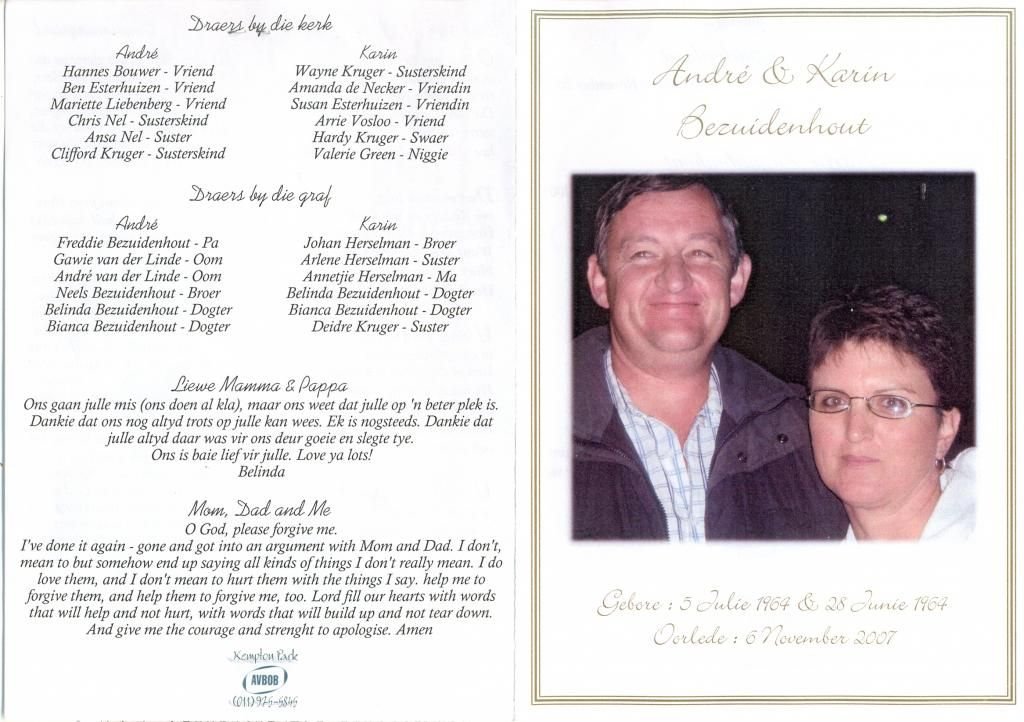 Draers by die kerk
André
Hannes Bouwer - Vriend
Ben Esterhuizen - Vriend
Mariette Liebenberg - Vriend
Chris Nel - Susterskind
Ansa Nel - Suster
Clifford Kruger - Susterskind
Karin
Wayne Kruger - Susterskind
Amanda de Necker - Vriendin
Susan Esterhuizen - Vriendin
Arrie Vosloo - Vriend
Hardy Kruger - Swaer
Valerie Green - Niggie
Draers by die graf
André
Freddie Bezuidenhout - Pa
Gawie van der Linde - Oom
André van der Linde - Oom
Neels Bezuidenhout - Broer
Belinda Bezuidenhout - Dogter
Bianca Bezuidenhout - Dogter
Karin
Johan Herselman - Broer
Arlene Herselman - Suster
Annetjie Herselman - Ma
Belinda Bezuidenhout - Dogter
Bianca Bezuidenhout - Dogter
Deidre Kruger - Suster
Liewe Mamma & Pappa
Ons gaan julle mis (ons doen al kla), maar ons weet dat julle op 'n beter plek is.
Dankie dat ons nog altyd trots op julle kan wees. Ek is nogsteeds. Dankie dat
julle altyd daar was vir ons deur goeie en slegte tye.
Ons is baie lief vir julle. Love ya lots!
Belinda
Mom, Dad and Me
O God, please forgive me.
I've done it again - gone and got into an argument with Mom and Dad. I don't,
mean to but somehow end up saying all kinds of things I don't really mean. I do
love them, and I don't mean to hurt them with the things I say. help me to
forgive them, and help them to forgive me, too. Lord fill our hearts with words
that will help and not hurt, with words that will build up and not tear down.
And give me the courage and strenght to apologise. Amen
Kempton Park
AVBOB
(011) 975-5845
André & Karin
Bezuidenhout
Gebore : 5 Julie 1964 & 28 Junie 1964
Oorlede : 6 November 2007